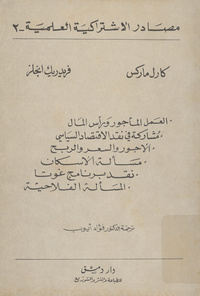 مصادر الاشتراكية العلمية - ٢
كارل ماركس فريدريك انجلز
• العمل المأجور ورأس المال
• مشاركة في نقد الاقتصاد السياسي
• الاجور والسعر والربح
• مسألة الاسكان
• نقد برنامج غوتا
• المسألة الفلاحية
ترجمة الدكتور فؤاد أيوب
دار دمشق
للطباعة والنشر والتوزيع